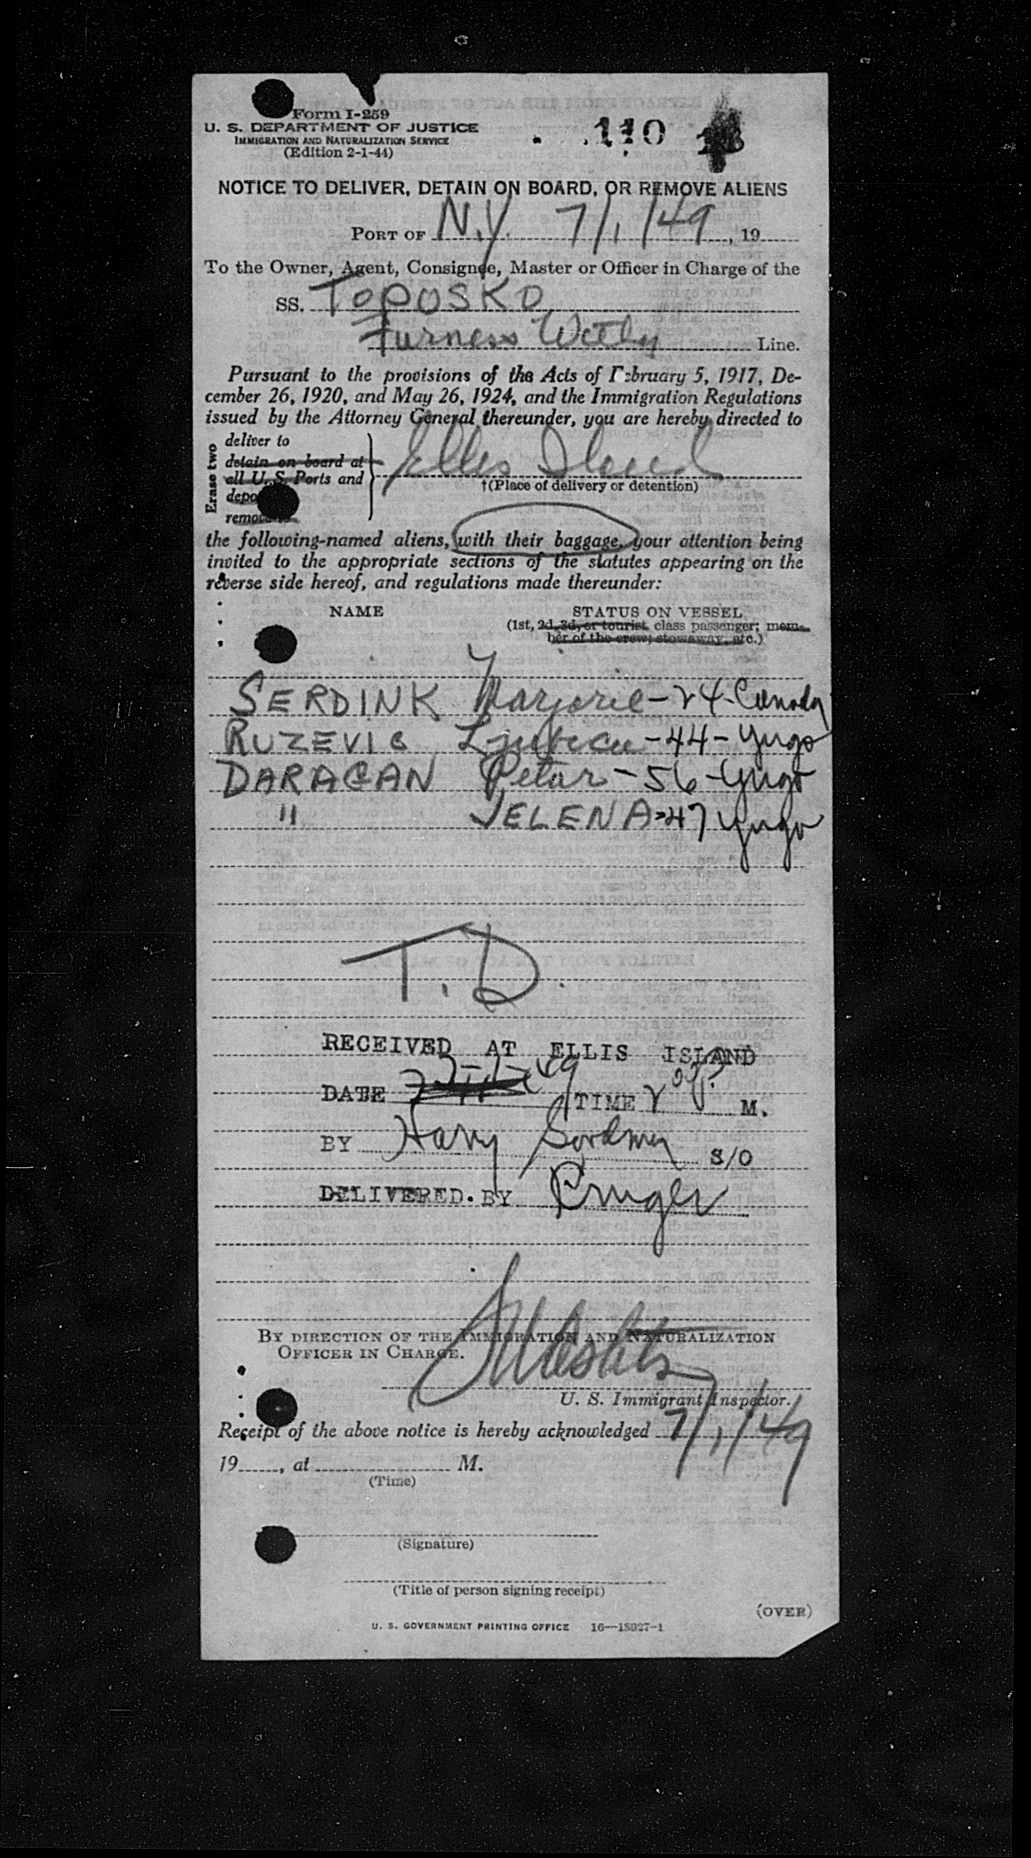 Form I-259
U. S. DEPARTMENT OF JUSTICE
IMMIGRATION AND NATURALIZATION SERVICE
(Edition 2-1-44)
110
NOTICE TO DELIVER, DETAIN ON BOARD, OR REMOVE ALIENS
PORT OF N.Y. 7/1/49, 19
To the Owner, Agent, Consignee, Master or Officer in Charge of the
SS. TOPUSKO
Furness Withy Line.
Pursuant to the provisions of the Acts of February 5, 1917, De-
cember 26, 1920, and May 26, 1924, and the Immigration Regulations
issued by the Attorney General thereunder, you are hereby directed to
Erase two
deliver to
detain on board at
all U. S. Ports and
remove
Ellis Island
†(Place of delivery or detention)
the following-named aliens, with their baggage, your attention being
invited to the appropriate sections of the statutes appearing on the
reverse side hereof, and regulations made thereunder:
NAME STATUS ON VESSEL
(1st, 2d, 3d, or tourist class passenger; mem-
ber of the crew; stowaway, etc.)
SERDINK Marjorie - 24 - Canada
RUZEVIC Ljubica - 44 - Yugo
DARAGAN Petar - 56 - Yugo
" JELENA - 47 Yugo
T.D.
RECEIVED AT ELLIS ISLAND
DATE 7-1-49 TIME M.
BY Harry S/O
DELIVERED BY Kruger
BY DIRECTION OF THE IMMIGRATION AND NATURALIZATION
OFFICER IN CHARGE.
U. S. Immigrant Inspector.
Receipt of the above notice is hereby acknowledged 7/1/49
19, at M.
(Time)
(Signature)
(Title of person signing receipt)
(OVER)
U. S. GOVERNMENT PRINTING OFFICE 16—18927-1